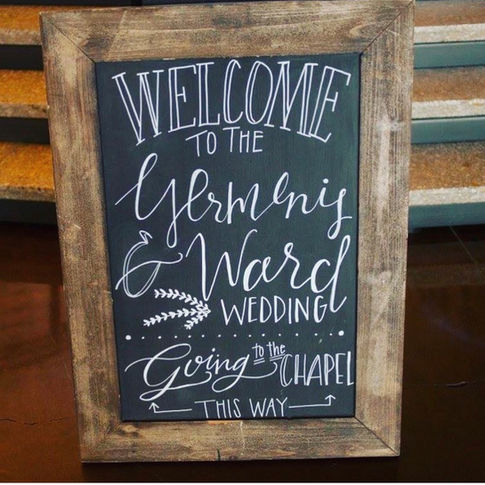 WELCOME
TO THE
Yermenis
& Ward
WEDDING
Going to the CHAPEL
THIS WAY